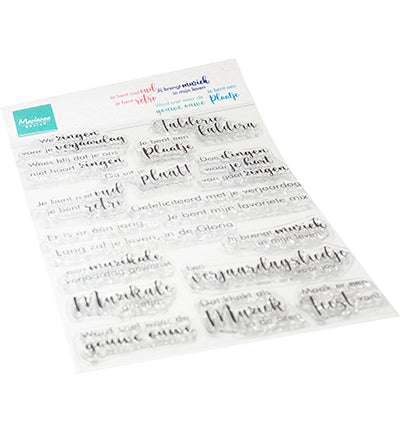 Marianne
DESIGN
Je bent niet oud
je bent retro
Jij brengt muziek
in mijn leven
Word snel weer de
gouwe ouwe
Je bent een
Plaatje
We zingen
voor je verjaardag
Wees blij dat je ons
niet hoort zingen
Falderie
faldera
Je bent een
Plaatje
Ga uit je
plaat!
Doe dingen
waar je hart
van gaat zingen
Je bent niet oud
je bent retro
Gefeliciteerd met je verjaardag
Je bent mijn favoriete mix
Er is er één jarig,
Lang zal je leven, in de Gloria
Jij brengt muziek
in mijn leven
Een muzikale
verjaardag gewenst
Een
Verjaardagsliedje
voor jou
Muzikale
Dat klinkt als
Muziek
in de oren
Maak er een
feest van!
Word snel weer de
gouwe ouwe